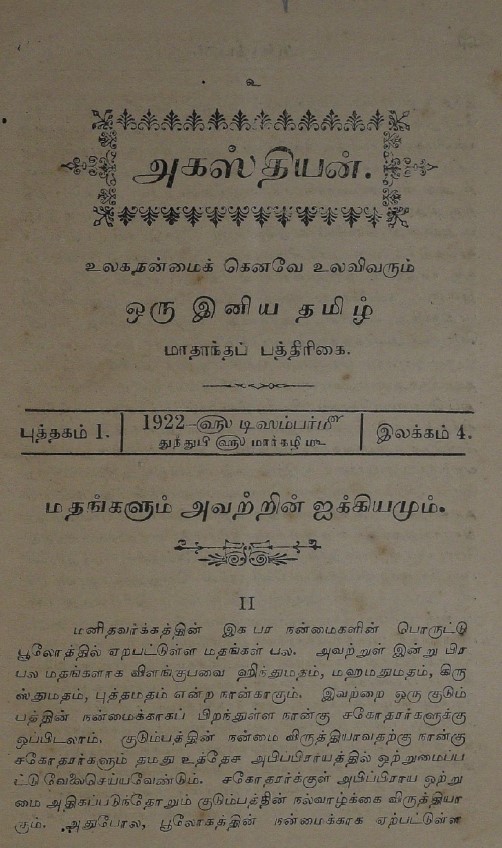 உ
அகஸ்தியன்.
உலக நன்மைக் கெனவே உலவிவரும்
ஒரு இனிய தமிழ்
மாதாந்தப் பத்திரிகை.
புத்தகம் 1.
1922-௵ டிஸம்பர்௴
துந்துபி ௵ மார்கழி ௴
இலக்கம் 4.
மதங்களும் அவற்றின் ஐக்கியமும்.
II
மனிதவர்க்கத்தின் இக பர நன்மைகளின் பொருட்டு
பூலோத்தில் ஏறபட்டுள்ள மதங்கள் பல. அவற்றுள் இன்று பிர
பல மதங்களாக விளங்குபவை ஹிந்துமதம், மஹமதுமதம், கிரு
ஸ்துமதம், புத்தமதம் என்ற நான்காகும். இவற்றை ஒரு குடும்
பத்தின் நன்மைக்காகப் பிறந்துள்ள நான்கு சகோதரர்களுக்கு
ஒப்பிடலாம். குடும்பத்தின் நன்மை விருத்தியாவதற்கு நான்கு
சகோதரர்களும் தமது உத்தேச அபிப்பிராயத்தில் ஒற்றுமைப்ப
ட்டு வேலைசெய்யவேண்டும். சகோதரர்க்குள் அபிப்பிராய ஒற்று
மை அதிகப்படுந்தோறும் குடும்பத்தின் நல்வாழ்க்கை விருத்தியா
கும். அதுபோல, பூலோகத்தின் நன்மைக்காக ஏற்பட்டுள்ள